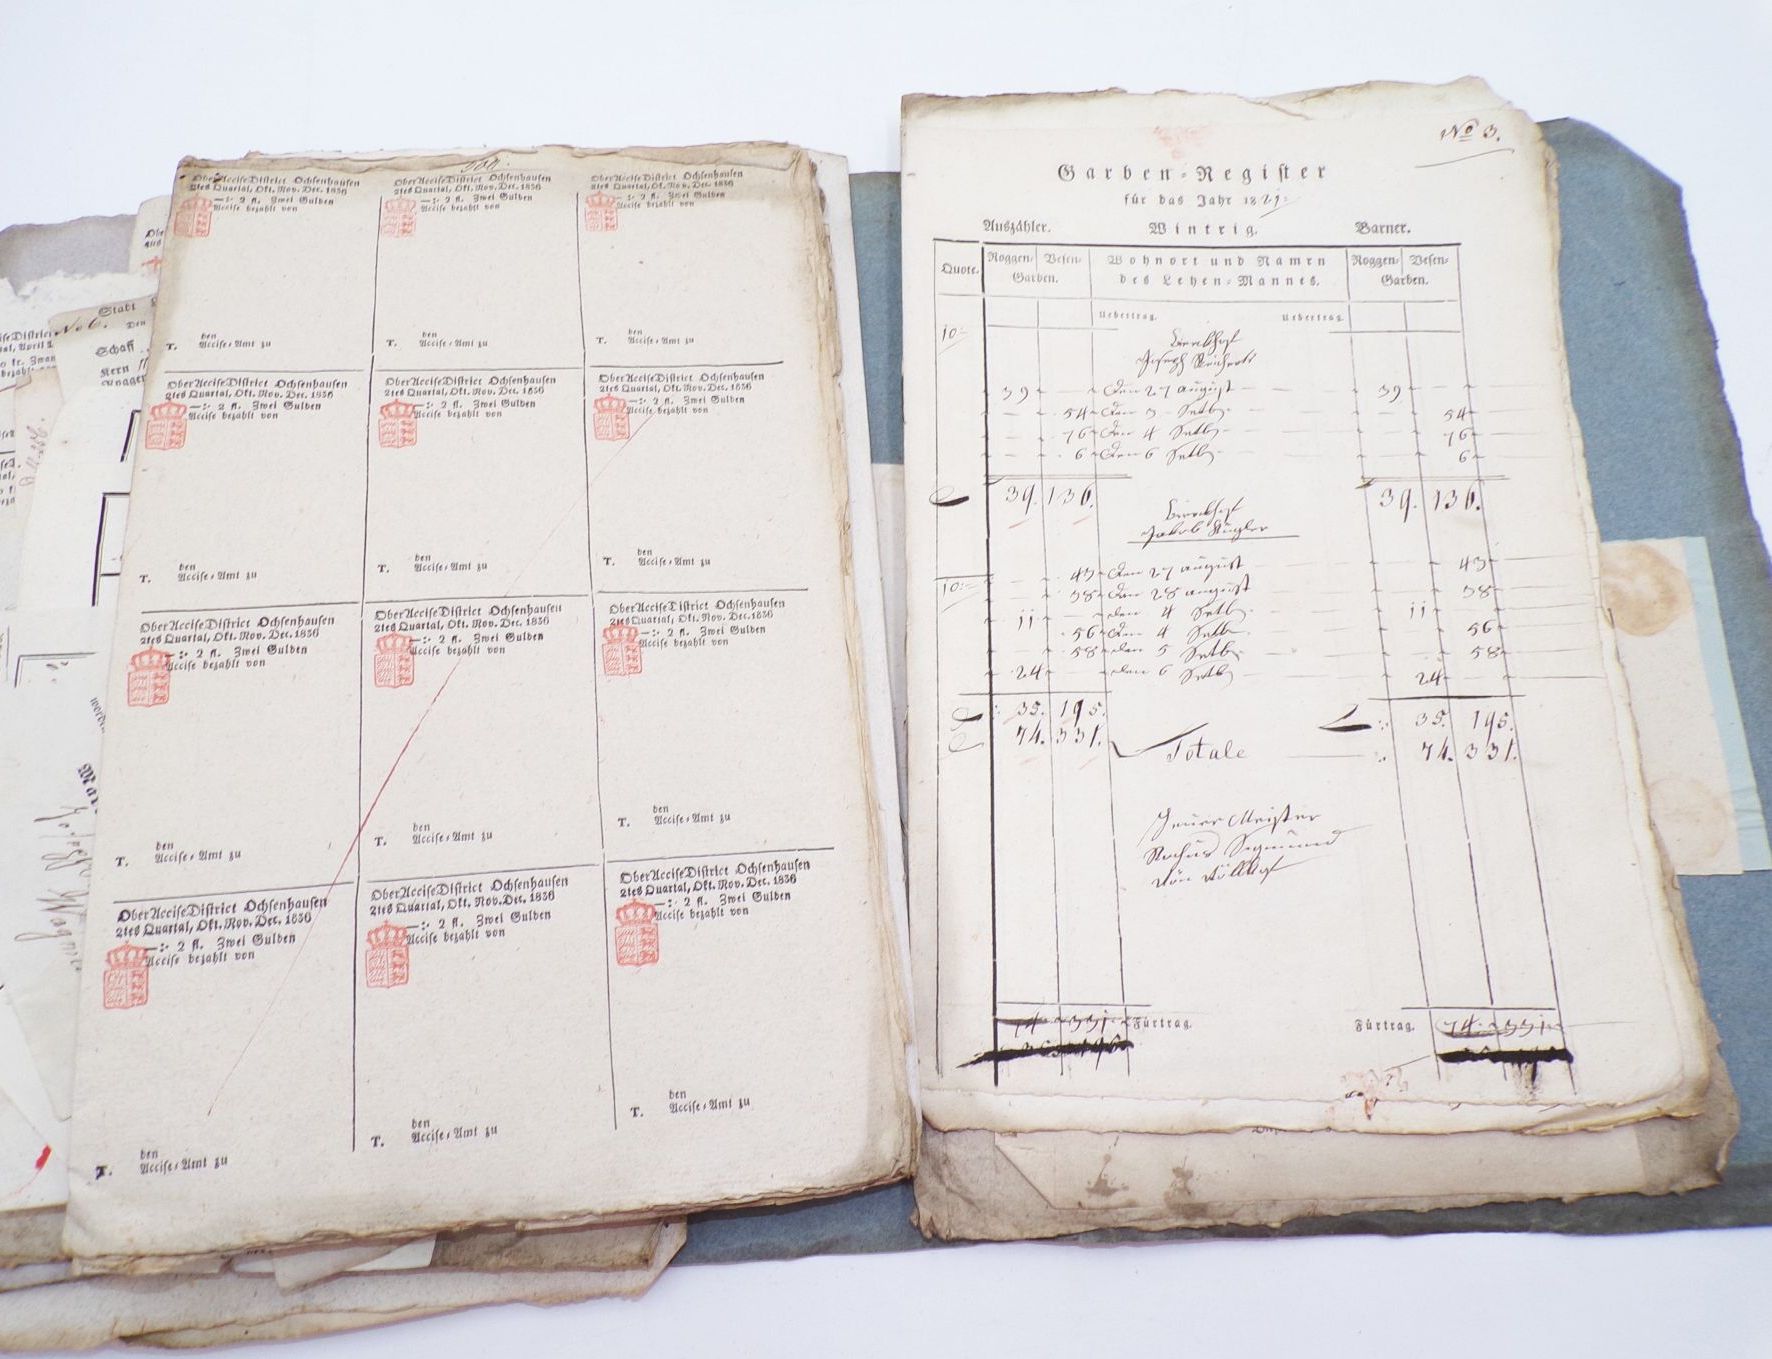 Ober Accise District Ochsenhausen
2tes Quartal, Okt. Nov. Dec. 1836
—:- 2 fl. Zwei Gulden
Accise bezahlt von
den
T. Accise-Amt zu
Ober Accise District Ochsenhausen
2tes Quartal, Okt. Nov. Dec. 1836
—:- 2 fl. Zwei Gulden
Accise bezahlt von
den
T. Accise-Amt zu
Ober Accise District Ochsenhausen
2tes Quartal, Okt. Nov. Dec. 1836
—:- 2 fl. Zwei Gulden
Accise bezahlt von
den
T. Accise-Amt zu
Ober Accise District Ochsenhausen
2tes Quartal, Okt. Nov. Dec. 1836
—:- 2 fl. Zwei Gulden
Accise bezahlt von
den
T. Accise-Amt zu
Ober Accise District Ochsenhausen
2tes Quartal, Okt. Nov. Dec. 1836
—:- 2 fl. Zwei Gulden
Accise bezahlt von
den
T. Accise-Amt zu
Ober Accise District Ochsenhausen
2tes Quartal, Okt. Nov. Dec. 1836
—:- 2 fl. Zwei Gulden
Accise bezahlt von
den
T. Accise-Amt zu
Ober Accise District Ochsenhausen
2tes Quartal, Okt. Nov. Dec. 1836
—:- 2 fl. Zwei Gulden
Accise bezahlt von
den
T. Accise-Amt zu
Ober Accise District Ochsenhausen
2tes Quartal, Okt. Nov. Dec. 1836
—:- 2 fl. Zwei Gulden
Accise bezahlt von
den
T. Accise-Amt zu
Ober Accise District Ochsenhausen
2tes Quartal, Okt. Nov. Dec. 1836
—:- 2 fl. Zwei Gulden
Accise bezahlt von
den
T. Accise-Amt zu
Ober Accise District Ochsenhausen
2tes Quartal, Okt. Nov. Dec. 1836
—:- 2 fl. Zwei Gulden
Accise bezahlt von
den
T. Accise-Amt zu
Ober Accise District Ochsenhausen
2tes Quartal, Okt. Nov. Dec. 1836
—:- 2 fl. Zwei Gulden
Accise bezahlt von
den
T. Accise-Amt zu
Ober Accise District Ochsenhausen
2tes Quartal, Okt. Nov. Dec. 1836
—:- 2 fl. Zwei Gulden
Accise bezahlt von
den
T. Accise-Amt zu
No 6.
Stadt
Den
Schaff
Kern
No 3.
Garben-Register
für das Jahr 1821
Auszähler. Wintrig. Barner.
Quote. Roggen- Vesen- Wohnort und Namen Roggen- Vesen-
Garben. des Lehen-Mannes. Garben.
Uebertrag. Uebertrag.
10
Joseph Reichert
39 Den 27 august 39
54 Den 3 Setb 54
76 Den 4 Setb 76
6 Den 6 Setb 6
39. 136. 39. 136.
Jakob Kugler
43 Den 27 august 43
10 38 Den 28 august 38
11 den 4 Setb 11
56 Den 4 Setb 56
58 den 5 Setb 58
24 den 6 Setb 24
35. 195. 35. 195.
74. 331. Totale 74. 331.
Meister
74 331 Fürtrag. Fürtrag. 74 331